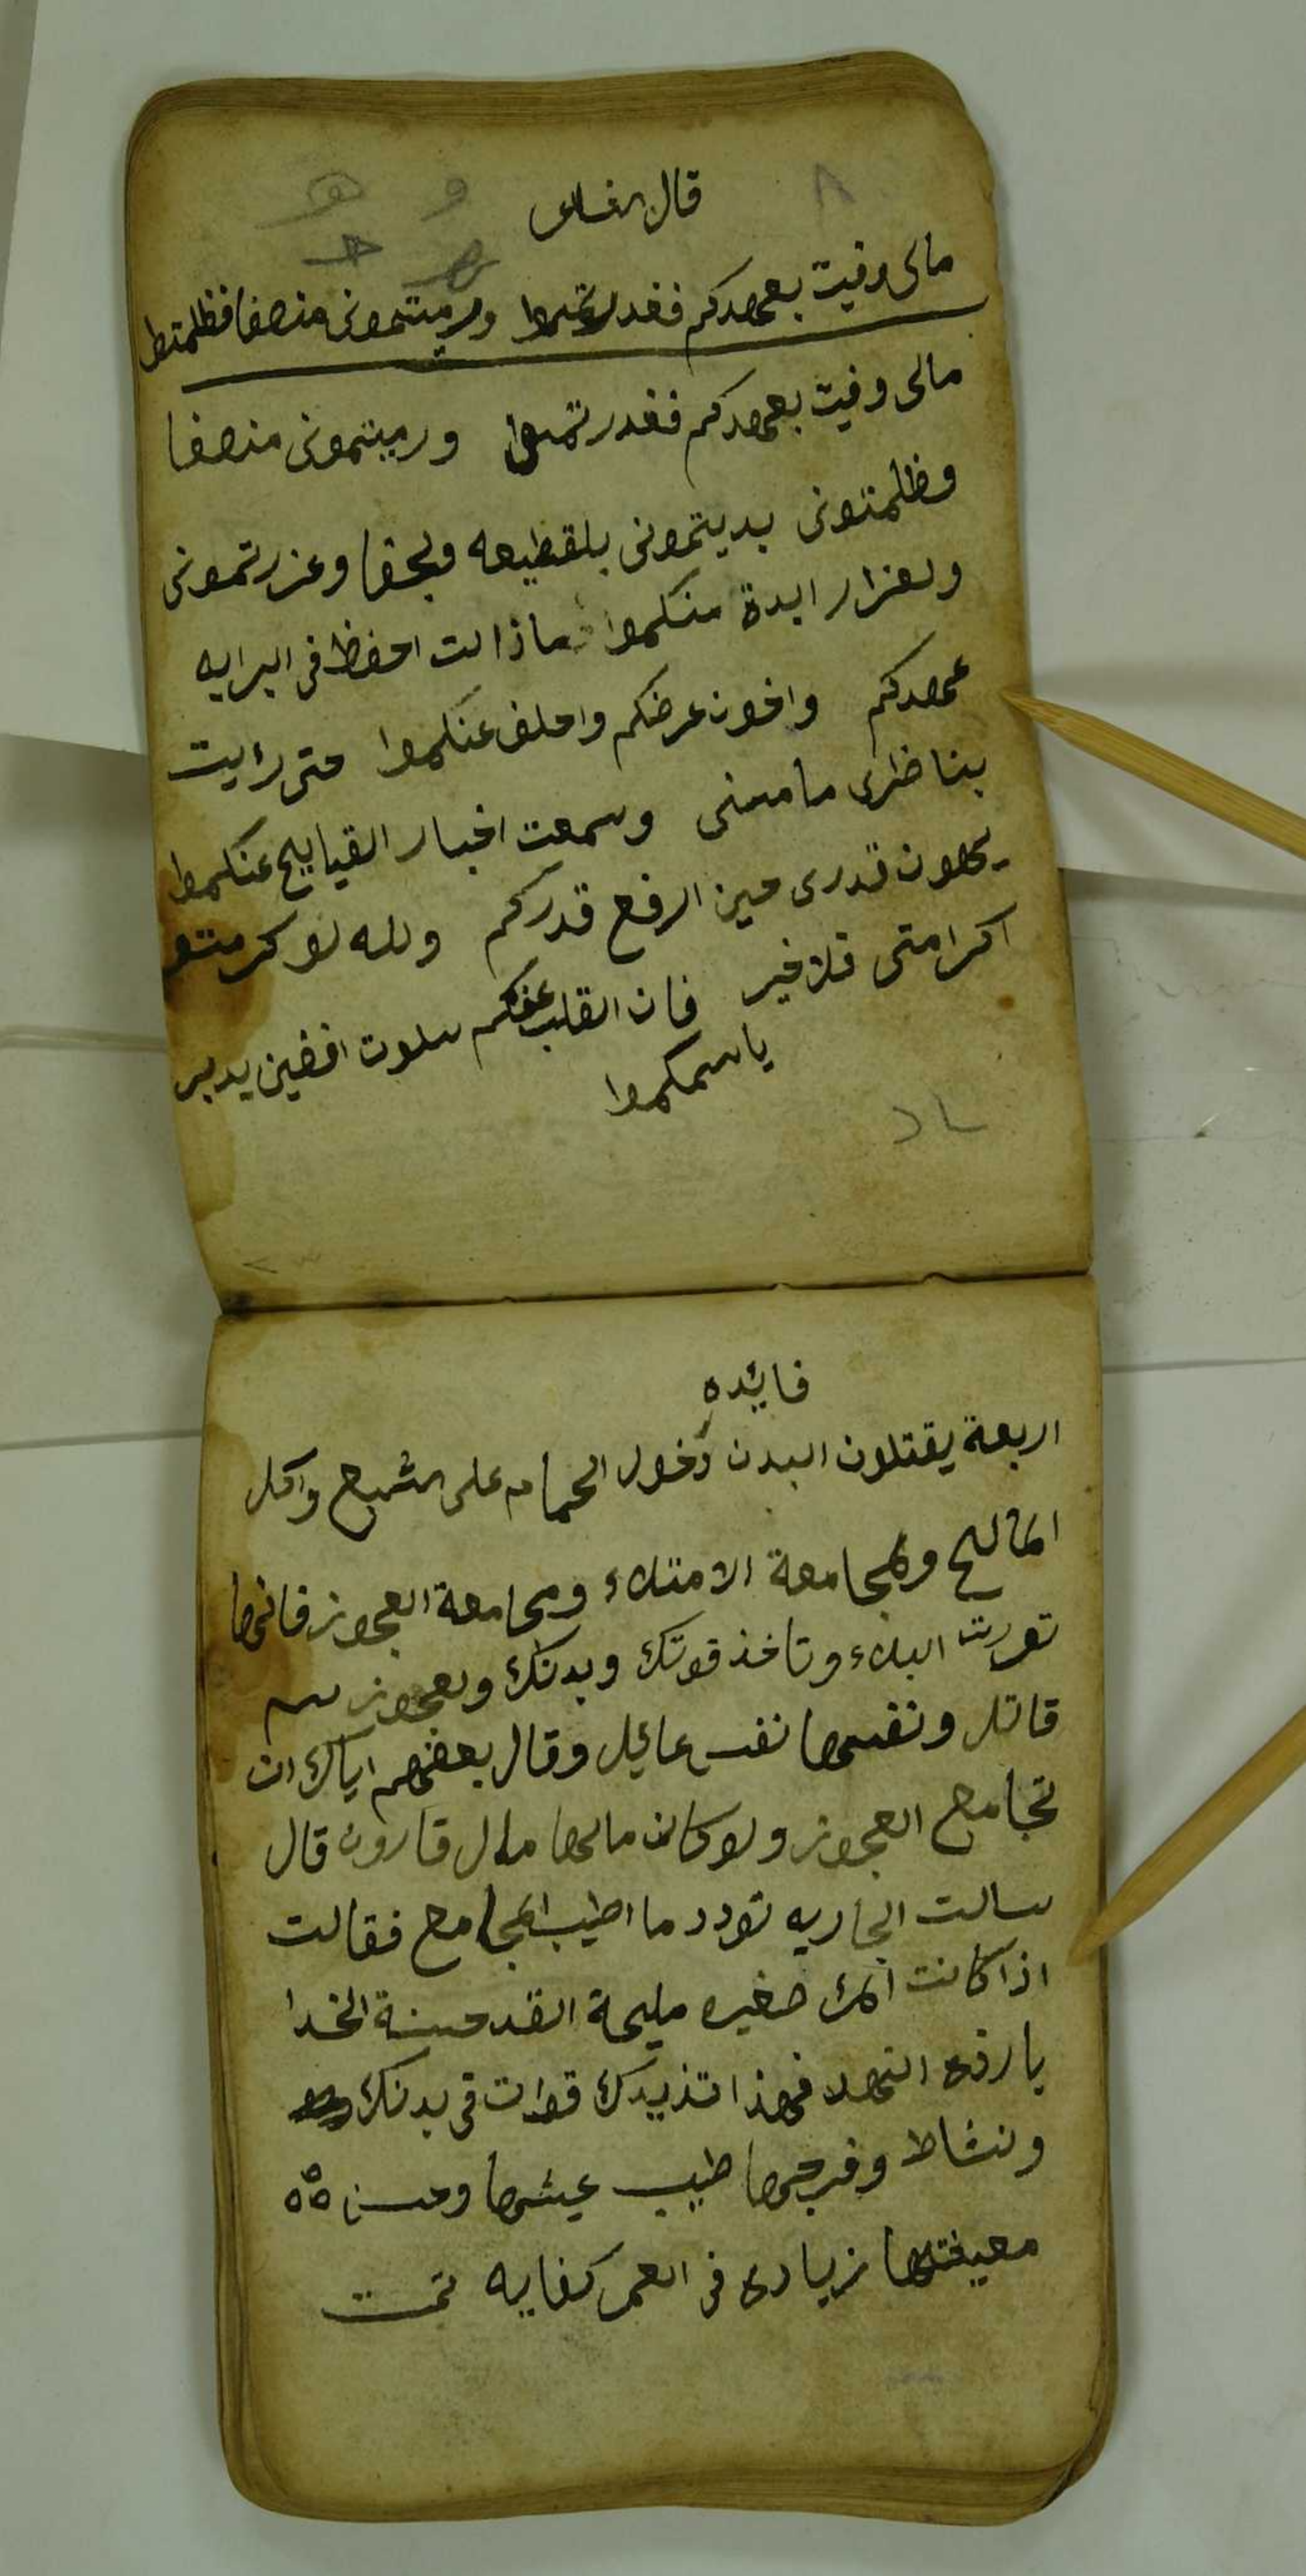 قال
مالى وفيت بعهدكم فغدرتموا ورميتمونى منصفا فظلمتوا
مالى وفيت بعهدكم فغدرتموا ورميتمونى منصفا
وظلمتونى بديتمونى بلقطيعه ولجفا وغررتمونى
منكموا مازالت احفظ فى البرايه
عهدكم واخون عرضكم واحلف عنكموا حتى رايت
بناظرى ماسنى وسمعت اخبار القبايح عنكموا
قدرى حين ارفع قدركم ولله لو كرمتو
اكرامتى فلا خير فان القلب عنكم سلوت
ياسمكموا
فايده
اربعة يقتلون البدن دخول الحمام على الشبع واكل
المالح ولمجامعة الامتلاء ومجامعة العجوز فانها
تورت البلاء وتاخذ قوتك وبدنك ولعجوز سم
قاتل ونفسها نفس عايل وقال بعضهم اياك ان
تجامع العجوز ولو كان مالها مال قارون قال
سالت الجاريه تودد ما اطيب المجامع فقالت
اذا كانت المراه صغيره مليحة القد حسنة الخدا
بارزه النهد فهذا تذيدك قوات فى بدنك
ونشاط وفرجها طيب عيشها وحسن ٥٥
زيادى فى العمر كفايه تمت